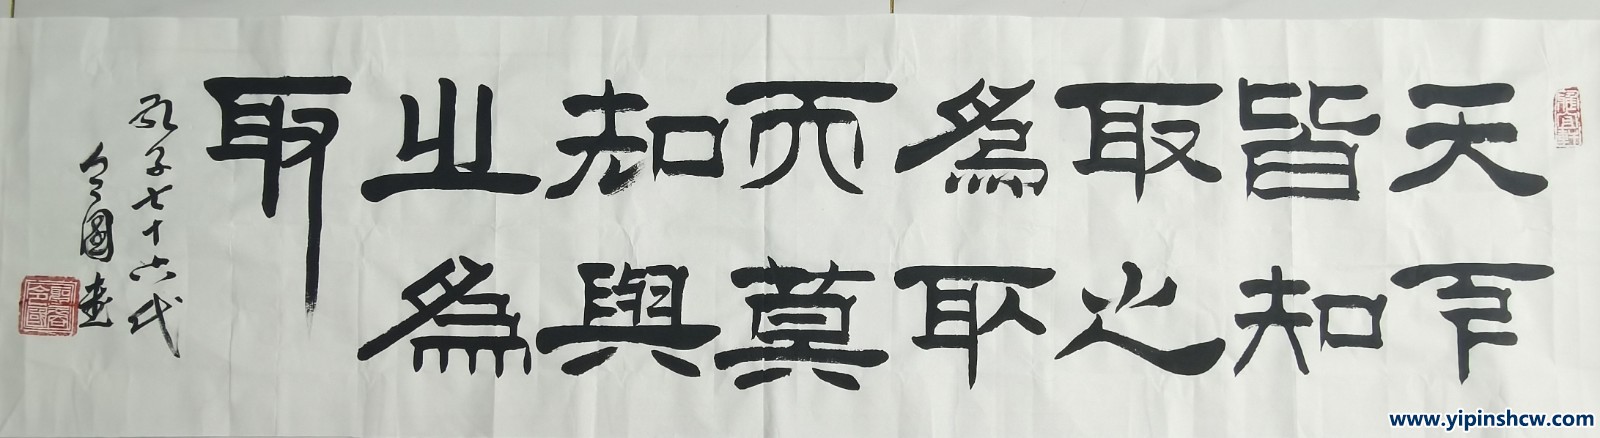 天下
皆知
取之
為取
而莫
知與
之為
取
孔子七十六代
令國書
www.yipinshcw.com